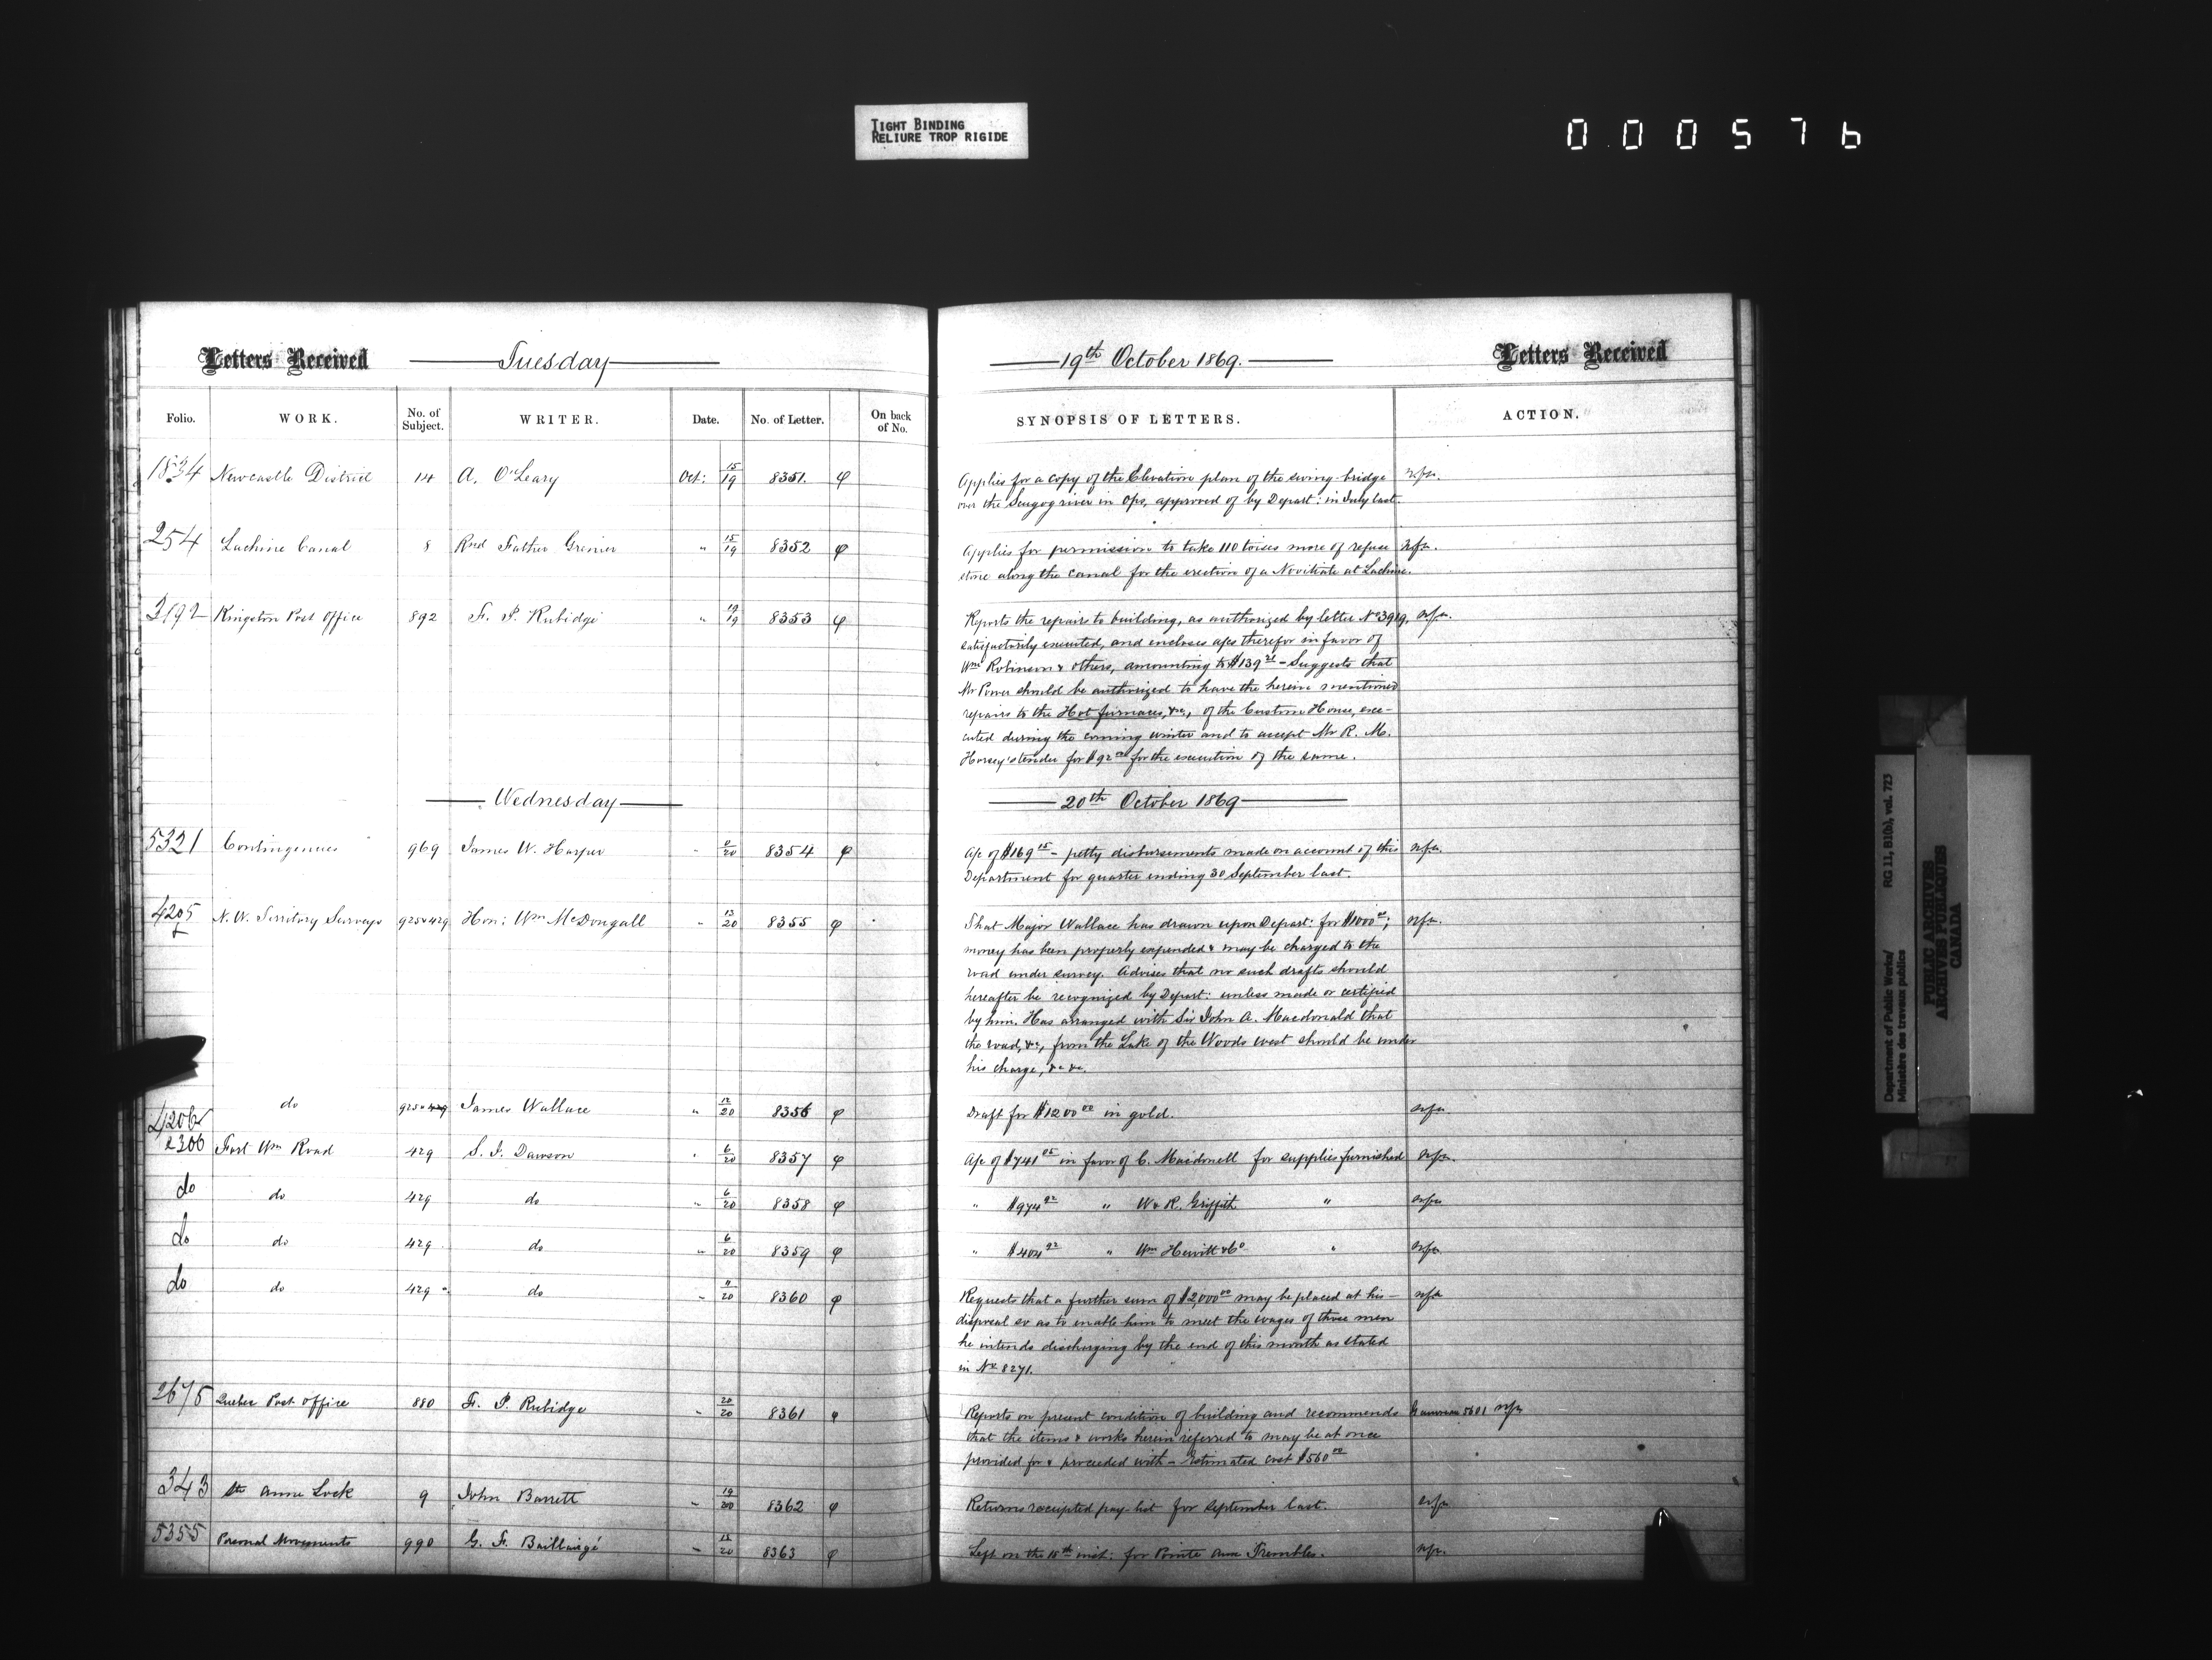 TIGHT BINDING
RELIURE TROP RIGIDE
000576
Letters Received Tuesday
Folio. WORK. No. of Subject. WRITER. Date. No. of Letter. On back of No.
1834 Newcastle District 14 A. O'Leary Oct: 15/19 8351.
254 Lachine Canal 8 Rvd Father Grenier " 15/19 8352
3192 Kingston Post Office 892 F. P. Rubidge " 19/19 8353
Wednesday
5321 Contingencies 969 James W. Harper " 8354
4205 N. W. Territory Surveys 925 & 429 Hon: Wm McDougall " 13/20 8355
4206 do 925 & 429 James Wallace " 12/20 8356
2306 Fort Wm Road 429 S. J. Dawson " 6/20 8357
do do 429 do " 6/20 8358
do do 429 do " 6/20 8359
do do 429 do " 11/20 8360
2675 Quebec Post Office 880 F. P. Rubidge " 20/20 8361
343 Ste Anne Lock 9 John Barrett " 19/20 8362
5355 Personal Movements 990 G. F. Baillairgé " 8363
19th October 1869. Letters Received
SYNOPSIS OF LETTERS. ACTION.
Applies for a copy of the Elevation plan of the swing bridge
over the Scugog river in Ops, approved of by Depart: in July last.
Applies for permission to take 110 toises more of refuse
stone along the canal for the erection of a Novitiate at Lachine.
Reports the repairs to building, as authorized by letter No 3919,
satisfactorily executed, and encloses a/cs therefor in favor of
Wm Robinson & others, amounting to $139 21 - Suggests that
Mr Power should be authorized to have the herein mentioned
repairs to the Hot furnaces, &c., of the Custom House, exe-
cuted during the coming winter and to accept Mr R. M.
Horsey's tender for $92 00 for the execution of the same.
20th October 1869
A/c of $169 15 - petty disbursements made on account of this
Department for quarter ending 30 September last.
That Major Wallace has drawn upon Depart: for $1000 00;
money has been properly expended & may be charged to the
road under survey. Advises that no such drafts should
hereafter be recognized by Depart: unless made or certified
by him. Has arranged with Sir John A. Macdonald that
the road, &c, from the Lake of the Woods west should be under
his charge, &c &c.
Draft for $1200 00 in gold.
A/c of $741 05 in favor of C. Macdonell for supplies furnished
" $974 92 " W & R. Griffith "
" $404 92 " Wm Hewitt & Co "
Requests that a further sum of $2,000 00 may be placed at his
disposal so as to enable him to meet the wages of those men
he intends discharging by the end of this month as stated
in No 8271.
Reports on present condition of building and recommends
that the items & works herein referred to may be at once
provided for & proceeded with - Estimated cost $560 00
Returns receipted pay-list for September last.
Left on the 15th inst: for Pointe aux Trembles.
Department of Public Works/
Ministère des travaux publics
RG 11, B1(b), vol. 723
PUBLIC ARCHIVES
ARCHIVES PUBLIQUES
CANADA